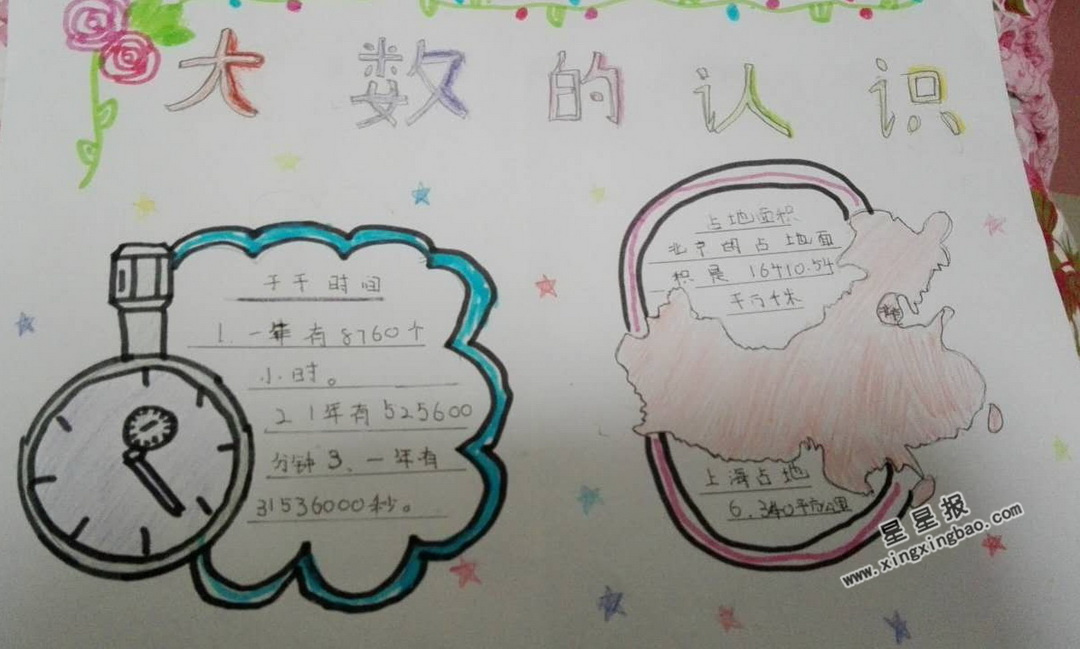 大数的认识
关于时间
1. 一年有8760个
小时。
2 1年有525600
分钟 3、一年有
31536000秒。
占地面积
北京的占地面
积是 16410.54
平方千米
上海占地
6.340平方公里
星星报
www.xingxingbao.com